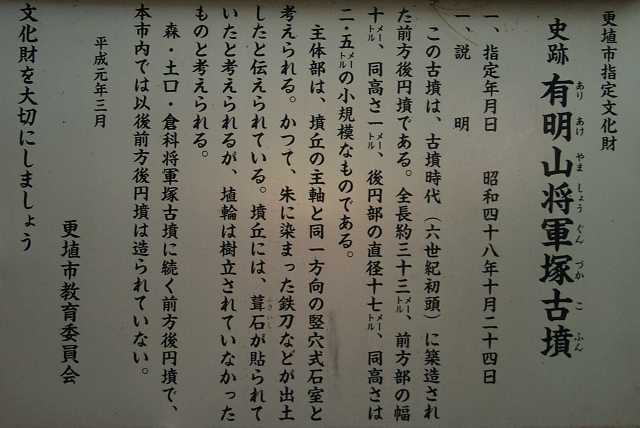 更埴市指定文化財
史跡 有明山将軍塚古墳
あり あけ やま しょう ぐん づか こ ふん
一、指定年月日 昭和四十八年十月二十四日
一、説 明
この古墳は、古墳時代（六世紀初頭）に築造され
た前方後円墳である。全長約三十三メートル、前方部の幅
十メートル、同高さ一メートル、後円部の直径十七メートル、同高さは
二・五メートルの小規模なものである。
主体部は、墳丘の主軸と同一方向の竪穴式石室と
考えられる。かつて、朱に染まった鉄刀などが出土
したと伝えられている。墳丘には、葺石が貼られて
ふきいし
いたと考えられるが、埴輪は樹立されていなかった
ものと考えられる。
森・土口・倉科将軍塚古墳に続く前方後円墳で、
本市内では以後前方後円墳は造られていない。
平成元年三月
更埴市教育委員会
文化財を大切にしましょう